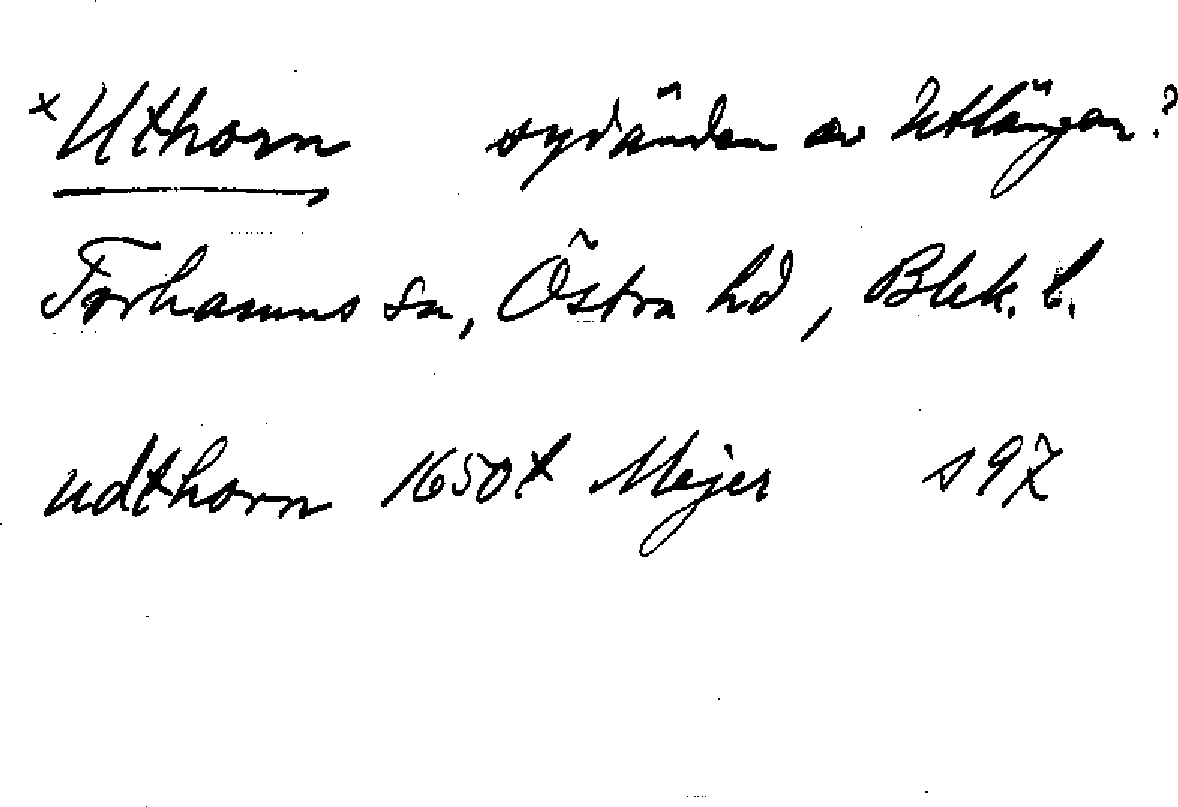 ×Uthorn sydänden av Utlängan?
Torhamns sn, Östra hd, Blek. l.
udthorn 1650t Mejer s 97